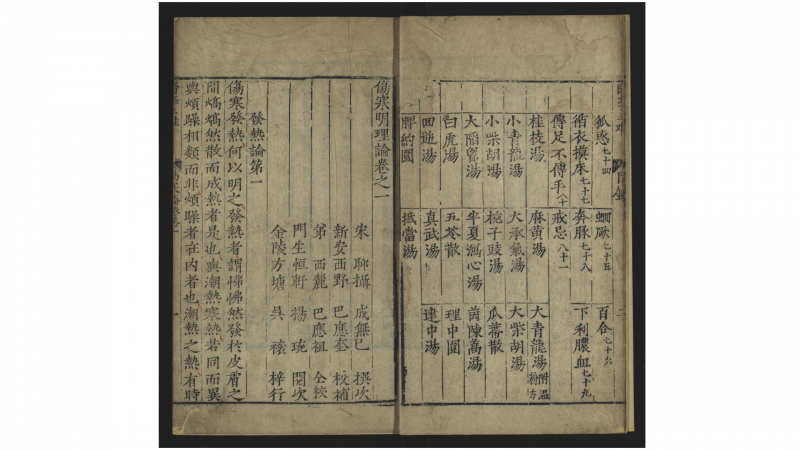 狐惑七十四 蛔厥七十五 百合七十六
循衣摸床七十七 奔豚七十八 下利膿血七十九
傳足不傳手八十 戒忌八十一
桂枝湯 麻黃湯 大青龍湯附溫粉方
小青龍湯 大承氣湯 大柴胡湯
小柴胡湯 梔子豉湯 瓜蒂散
大陷胷湯 半夏瀉心湯 茵陳蒿湯
白虎湯 五苓散 理中圓
四逆湯 真武湯 建中湯
脾約圓 抵當湯
傷寒明理論卷之一
宋 聊攝 成無已 撰次
新安西野 巴應奎 校補
第 西麓 巴應祖 仝校
門生恒軒 揚 琓 閱次
金陵方塘 吳 梓行
發熱論第一
傷寒發熱何以明之發熱者謂怫怫然發於皮膚之
間熇熇然散而成熱者是也與潮熱寒熱若同而異
與煩躁相類而非煩躁者在內者也潮熱之熱有時